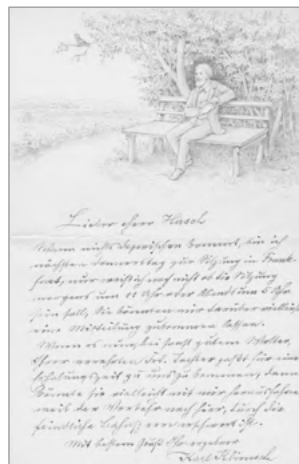 Lieber Herr Hasch
Wenn nichts dazwischen kommt, bin ich
nächsten Donnerstag zur Sitzung in Frank-
furt, nur weiß ich noch nicht ob die Sitzung
morgens um 11 Uhr oder Abends um 5 Uhr
sein soll, Sie könnten mir darüber vielleicht
eine Mitteilung zukommen lassen.
Wenn es nun, bei sonst gutem Wetter,
Ihrer verehrten Frl. Tochter paßt für eine
Erholungszeit zu uns zu kommen, dann
könnte sie vielleicht mit mir herausfahren
weil der Verkehr nach hier, durch die
feindliche
Mit besten Grüßen Ihr ergebener
Karl